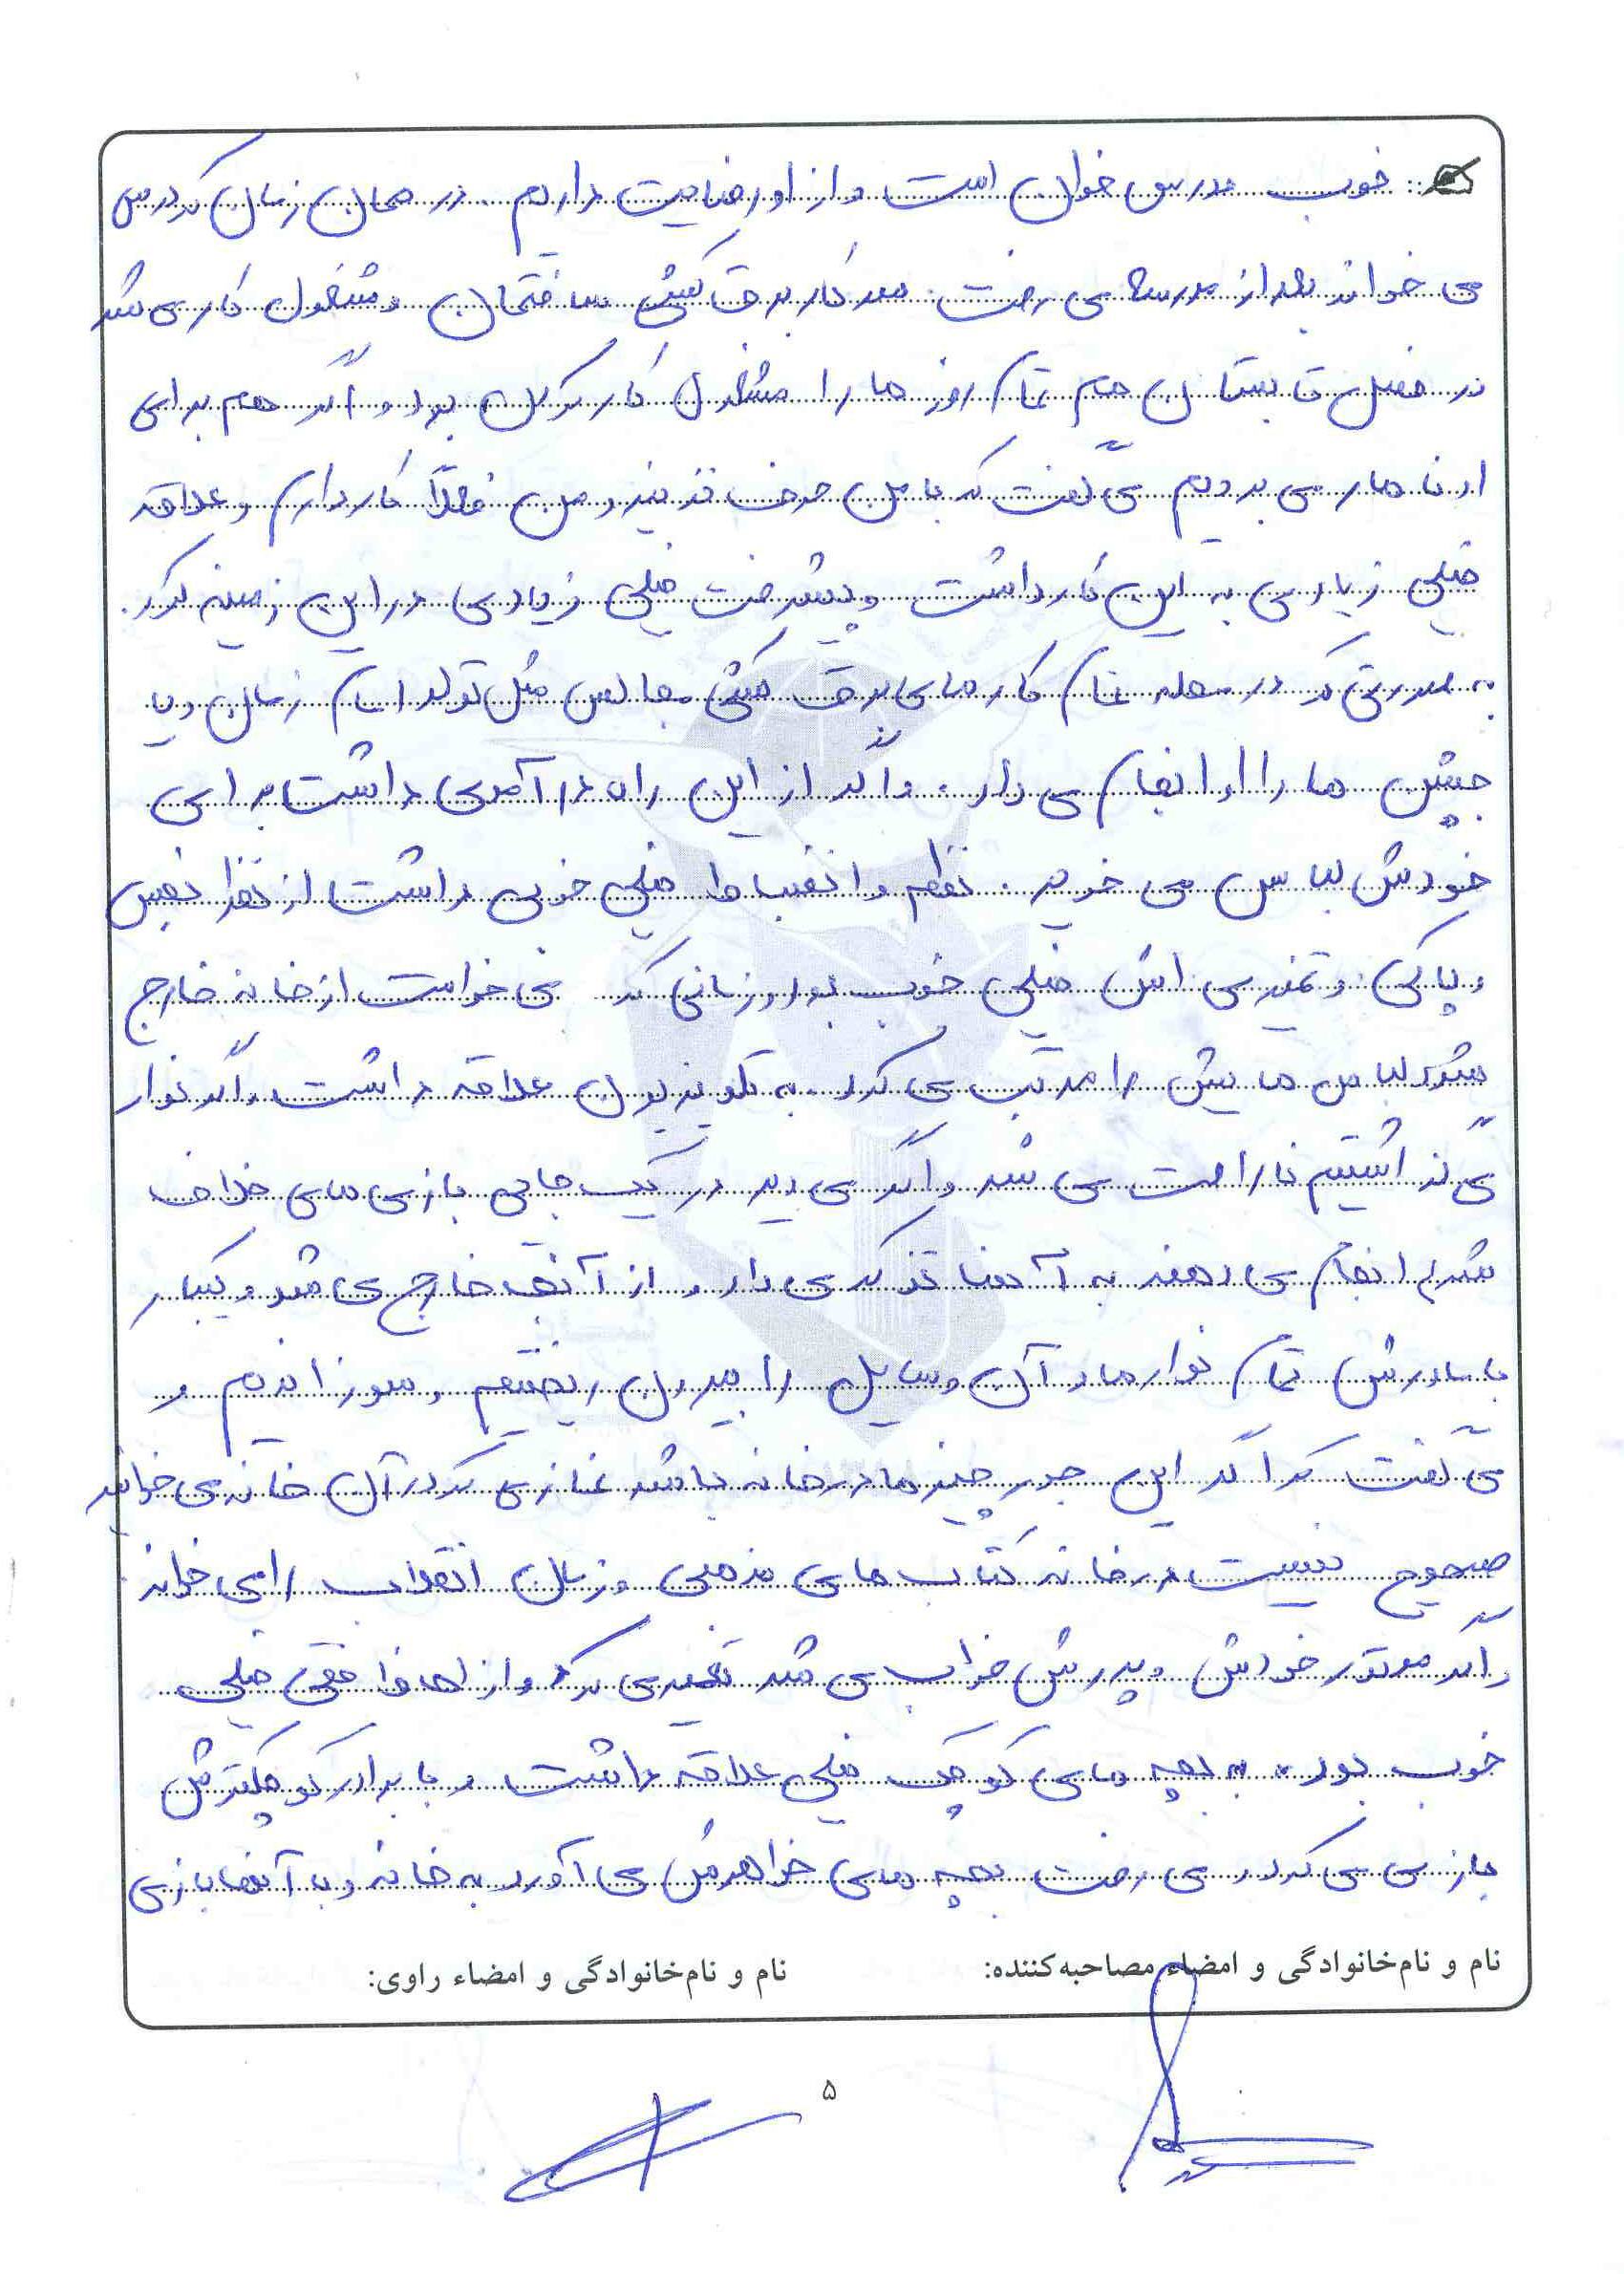 خوب درس خوان است و از او رضایت داریم. در همان زمان که درس
می خواند بعد از مدرسه می رفت سر کار برق کشی ساختمان و مشغول کار می شد
در فصل تابستان هم تمام روزها را مشغول کار کردن بود و اگر هم برای
او ناهار می بردیم می گفت که با من حرف نزنید و من فعلاً کار دارم و علاقه
خیلی زیادی به این کار داشت و پیشرفت خیلی زیادی در این زمینه کرد.
به صورتی که در محله تمام کارهای برق کشی مجالس مثل تولد امام زمان و یا
جشن ها را او انجام می داد. و اگر از این راه درآمدی داشت برای
خودش لباس می خرید. نظم و انضباط خیلی خوبی داشت از نظر نفیس
و پاکی و تمیزی اش خیلی خوب بود و زمانی که می خواست از خانه خارج
شود لباس هایش را مرتب می کرد. به تلویزیون علاقه داشت و اگر نوار
می گذاشتیم ناراحت می شد و اگر می دید در یک جایی بازی های خلاف
شرع انجام می دهند به آنها تذکر می داد و از آنجا خارج می شد و یکبار
با مادرش تمام نوارها و آن وسایل را بیرون ریختیم و سوزاندیم و
می گفت که اگر این جور چیزها در خانه باشد نمازی که در آن خانه می خوانید
صحیح نیست در خانه کتاب های مذهبی و زمان انقلاب را می خواند
و اگر موتور خودش و پدرش خراب می شد تعمیر می کرد و از لحاظ فنی خیلی
خوب بود. به بچه های کوچک خیلی علاقه داشت و با برادر کوچکترش
بازی می کرد و می رفت بچه های خواهرش می آورد به خانه و با آنها بازی
نام و نام‌خانوادگی و امضاء مصاحبه‌کننده:
نام و نام‌خانوادگی و امضاء راوی:
۵